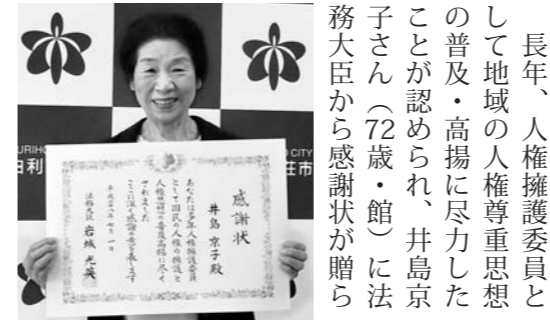 長年、人権擁護委員と
して地域の人権尊重思想
の普及・高揚に尽力した
ことが認められ、井島京
子さん（72歳・館）に法
務大臣から感謝状が贈ら
感謝状
井島 京子殿
あなたは多年人権擁護委員
として国民の人権の擁護と
人権思想の普及高揚に尽く
されました
ここに深く感謝の意を表します
平成二十八年七月一日
法務大臣 岩城 光英
URIHO
O CITY
利
荘市